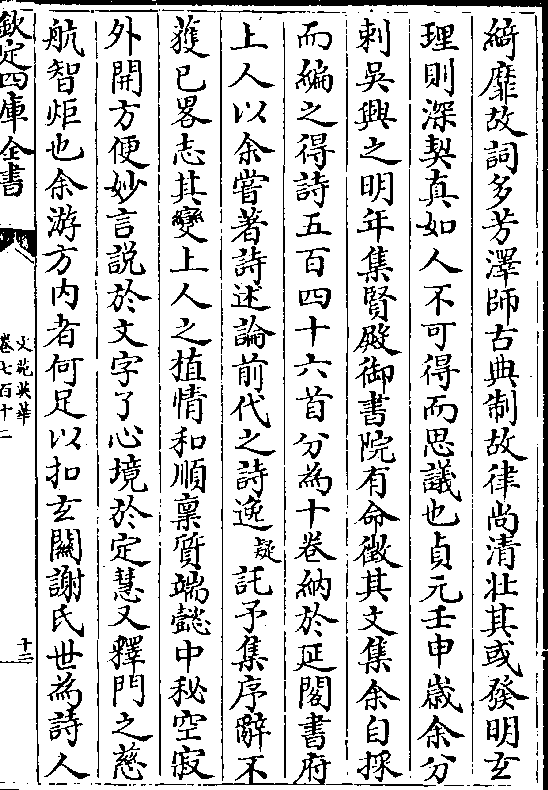 綺靡故詞多芳澤師古典制故律尚清壯其或發明玄
理則深契真如人不可得而思議也貞元壬申歳余分
刺吳興之明年集賢殿御書院有命徵其文集余自採
而編之得詩五百四十六首分為十卷納於延閣書府
上人以余嘗著詩述論前代之詩逸疑託予集序辭不
獲已畧志其變上人之植情和順稟質端懿中秘空寂
外開方便妙言説於文字了心境於定慧又釋門之慈
航智炬也余游方内者何足以扣玄關謝氏世為詩人
欽定四庫全書
文苑英華
卷七百十二
十三